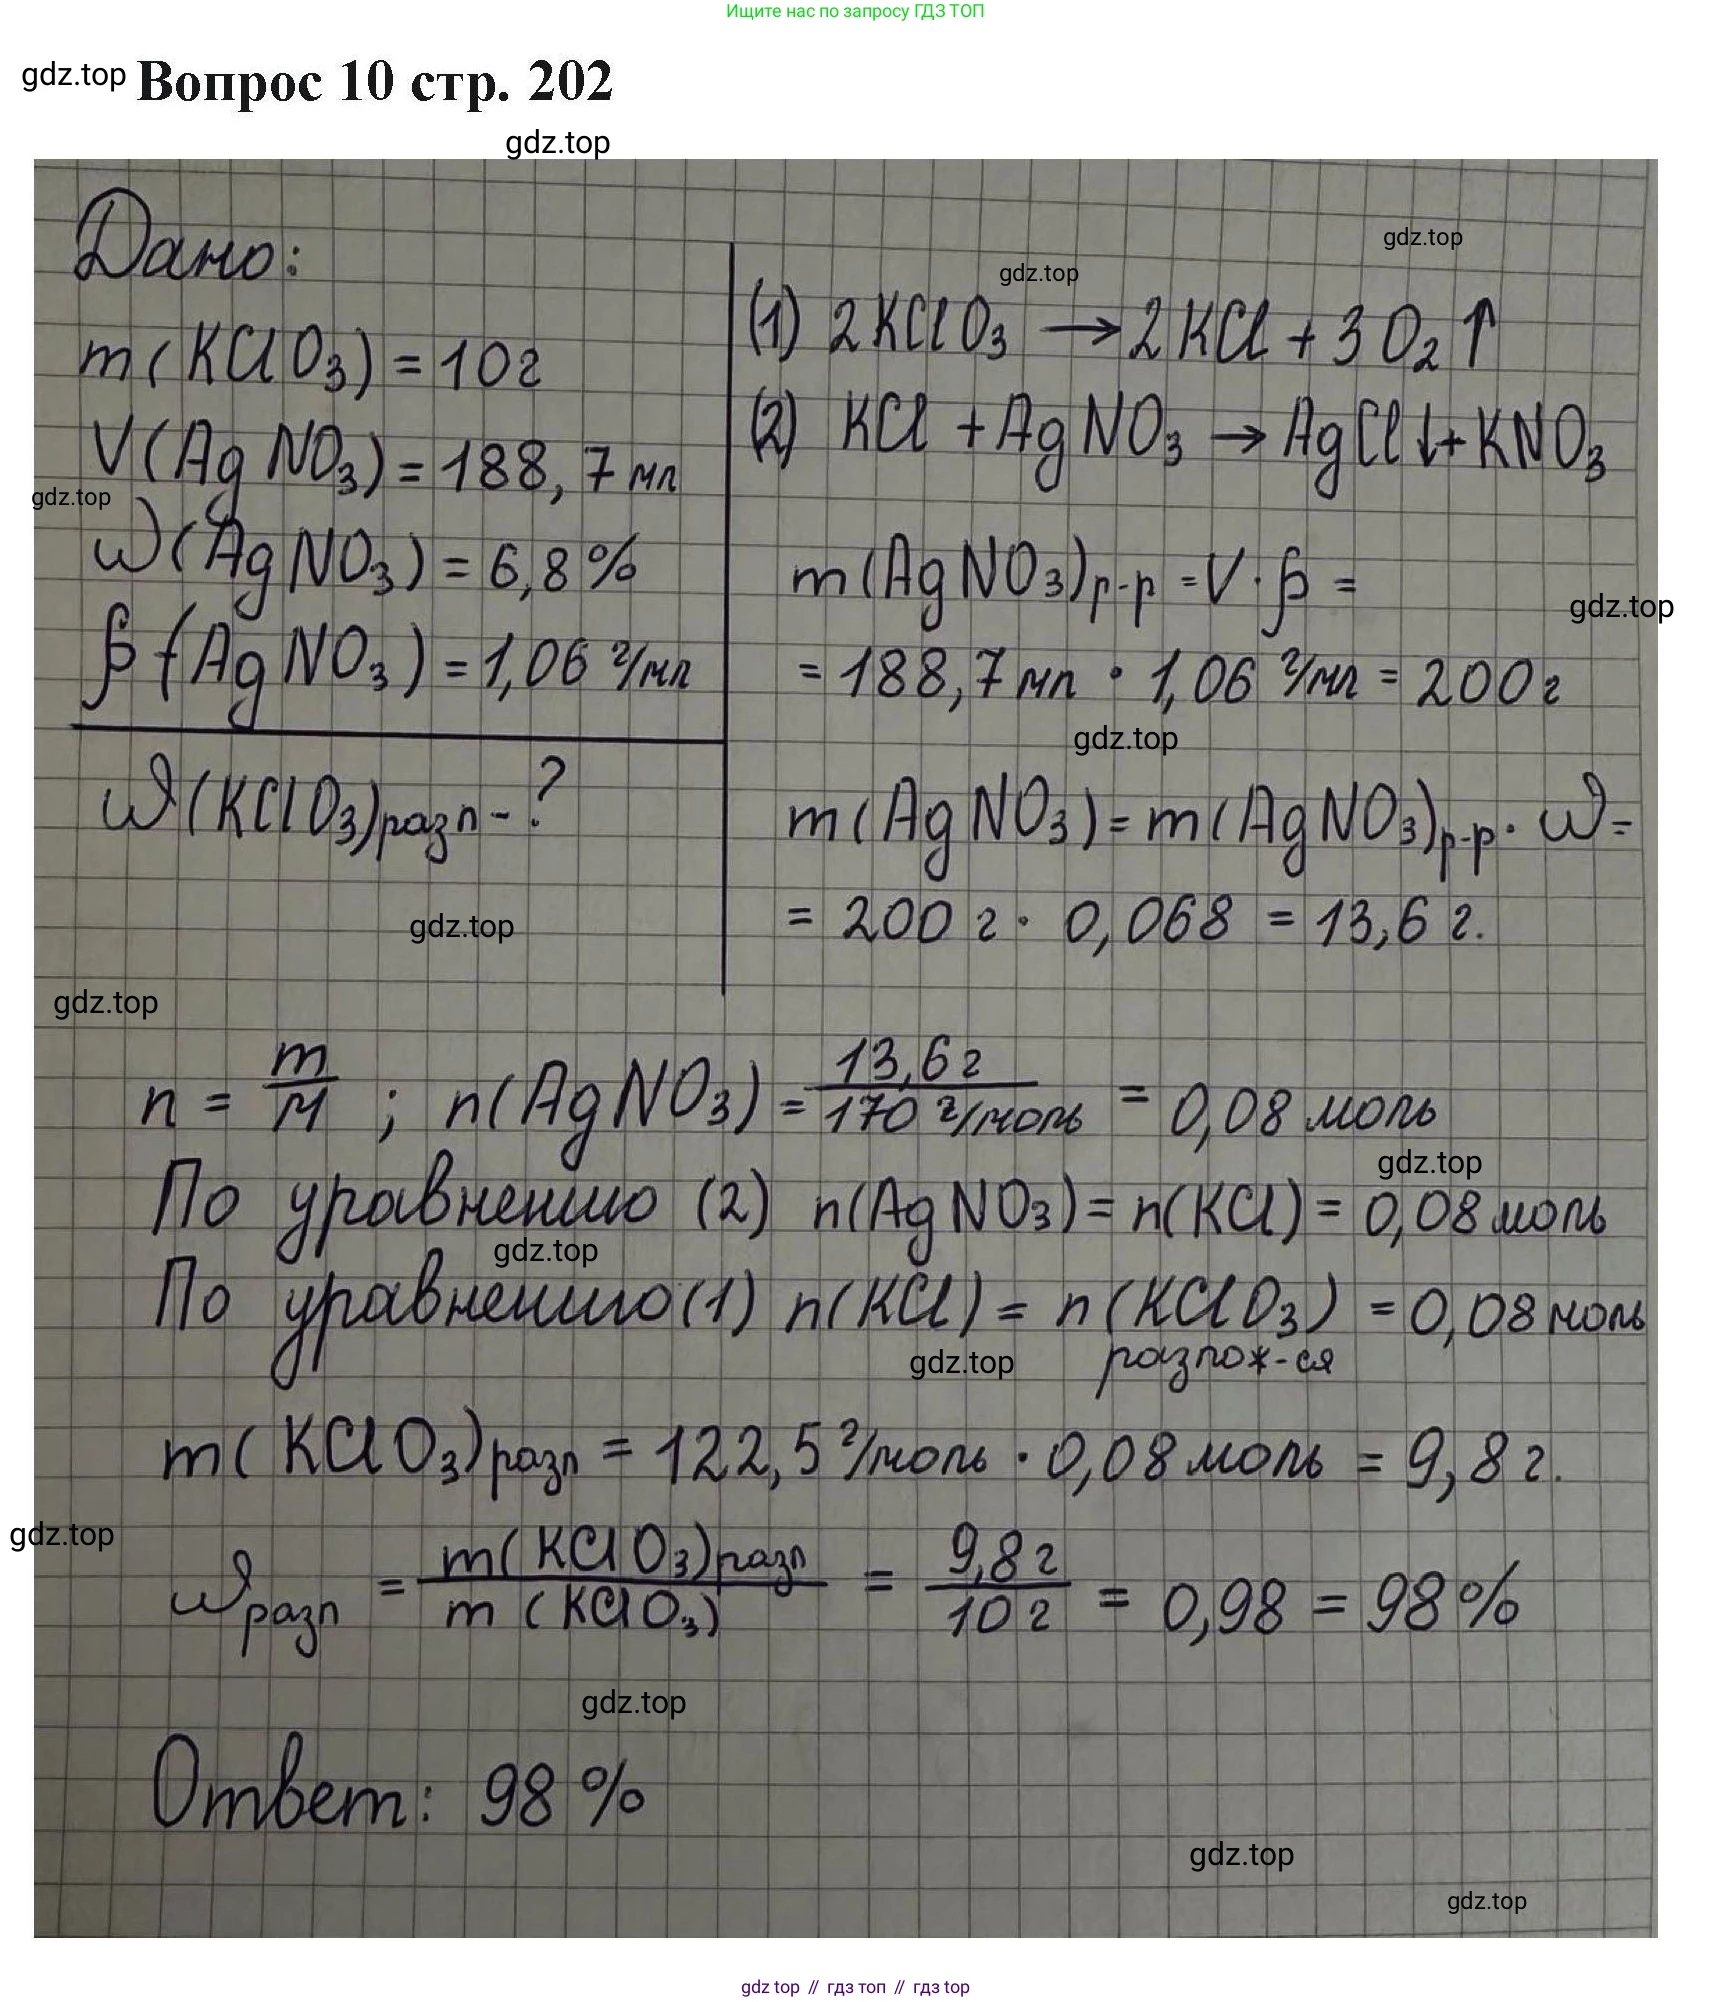 Ищите нас по запросу ГДЗ ТОП
gdz.top Вопрос 10 стр. 202
gdz.top
Дано:
m(KClO₃) = 10г
V(AgNO₃) = 188,7 мл
gdz.top
ω(AgNO₃) = 6,8 %
ρ(AgNO₃) = 1,06 г/мл
ω(KClO₃)разл - ?
gdz.top
gdz.top
gdz.top
gdz.top
(1) 2KClO₃ → 2KCl + 3O₂↑
(2) KCl + AgNO₃ → AgCl↓ + KNO₃
m(AgNO₃)р-р = V · ρ =
gdz.top
= 188,7 мл · 1,06 г/мл = 200 г
gdz.top
m(AgNO₃) = m(AgNO₃)р-р · ω =
= 200 г · 0,068 = 13,6 г.
n = m/M ; n(AgNO₃) = 13,6 г / 170 г/моль = 0,08 моль
gdz.top
По уравнению (2) n(AgNO₃) = n(KCl) = 0,08 моль
gdz.top
По уравнению (1) n(KCl) = n(KClO₃) = 0,08 моль
gdz.top разлож-ся
m(KClO₃)разл = 122,5 г/моль · 0,08 моль = 9,8 г.
gdz.top
ωразл = m(KClO₃)разл / m(KClO₃) = 9,8 г / 10 г = 0,98 = 98 %
gdz.top
Ответ: 98 %
gdz.top
gdz.top
gdz top // гдз топ // гдз top